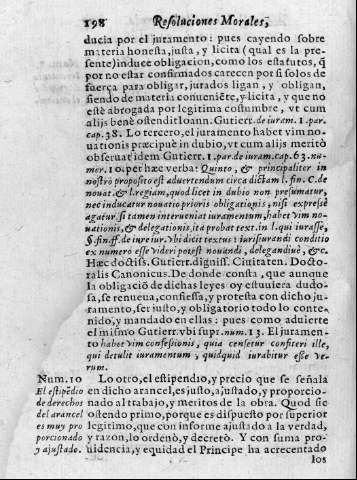 198 Resoluciones Morales,
ducia por el juramento: pues cayendo sobre
materia honesta, justa, y licita (qual es la pre-
sente) induce obligacion, como los estatutos, q̃
por no estar confirmados carecen por si solos de
fuerça para obligar, jurados ligan, y obligan,
siendo de materia conueniẽte, y licita, y que no
estè abrogada por legitima costumbre, vt cum
alijs benè ostendit Ioann. Gutierr. de iuram. 1. par.
cap. 38. Lo tercero, el juramento habet vim no-
uationis præcipuè in dubio, vt cum alijs meritò
obseruat idem Gutierr. 1. par. de iuram. cap. 63. nu-
mer. 10. per hæc verba: Quinto, & principaliter in
nostrò proposito est aduertendum circa dictam l. fin. C. de
nouat. & l. regiam, quod licet in dubio non presumatur,
nec inducatur nouatio prioris obligationis, nisi expresè
agatur. si tamen interueniat iuramentum, habet vim no-
uationis, & delegationis, ita probat text. in l. qui iurasse,
§. fin. ff. de iure iur. Vbi dicit textus: iurisiurandi conditio
ex numero esse videri potest nouandi, delegandiuè, &c.
Hæc doctiss. Gutierr. digniss. Ciuitaten. Docto-
ralis Canonicus. De donde consta, que aunque
la obligaciõ de dichas leyes oy estuuiera dudo-
sa, se renueua, confiessa, y protesta con dicho ju-
ramento, ser justo, y obligatorio todo lo conte-
nido, y mandado en ellas: pues como aduierte
el mismo Gutierr. vbi supr. num. 13. El juramen-
to habet vim confesionis, quia censetur confiteri ille,
qui detulit iuramentum, quidquid iurabitur esse ve-
rum.
Num. 10 Lo otro, el estipendio, y precio que se señala
El estipẽdio en dicho arancel, es justo, ajustado, y proporcio-
de derechos nado al trabajo, y meritos de la obra. Quod sic
del arancel ostendo primo, porque es dispuesto por superior
es muy pro legitimo, que con informe ajustado a la verdad,
porcionado y razon, lo ordenò, y decretò. Y con suma pro-
y ajustado. uidencia, y equidad el Principe ha acrecentado
los